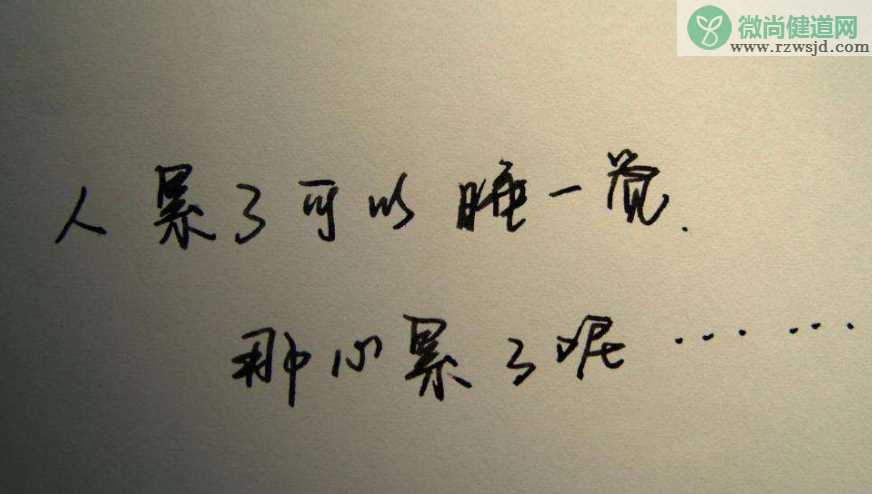 微尚健道网
www.rzwsjd.com
人累了可以睡一觉.
那心累了呢……